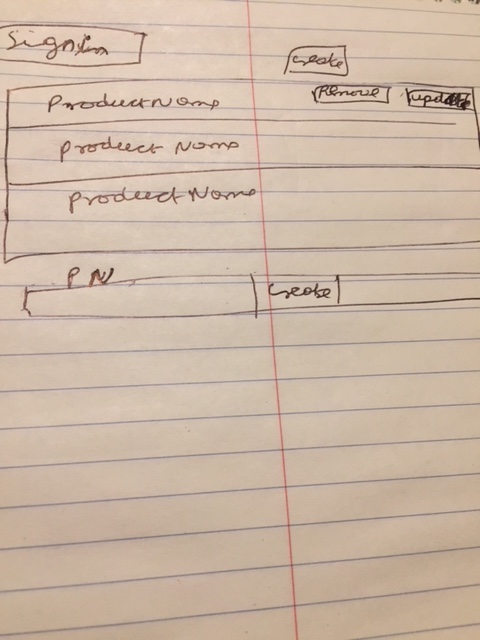 SignIn
Create
Product Name Remove update
Product Name
Product Name
PN
Create